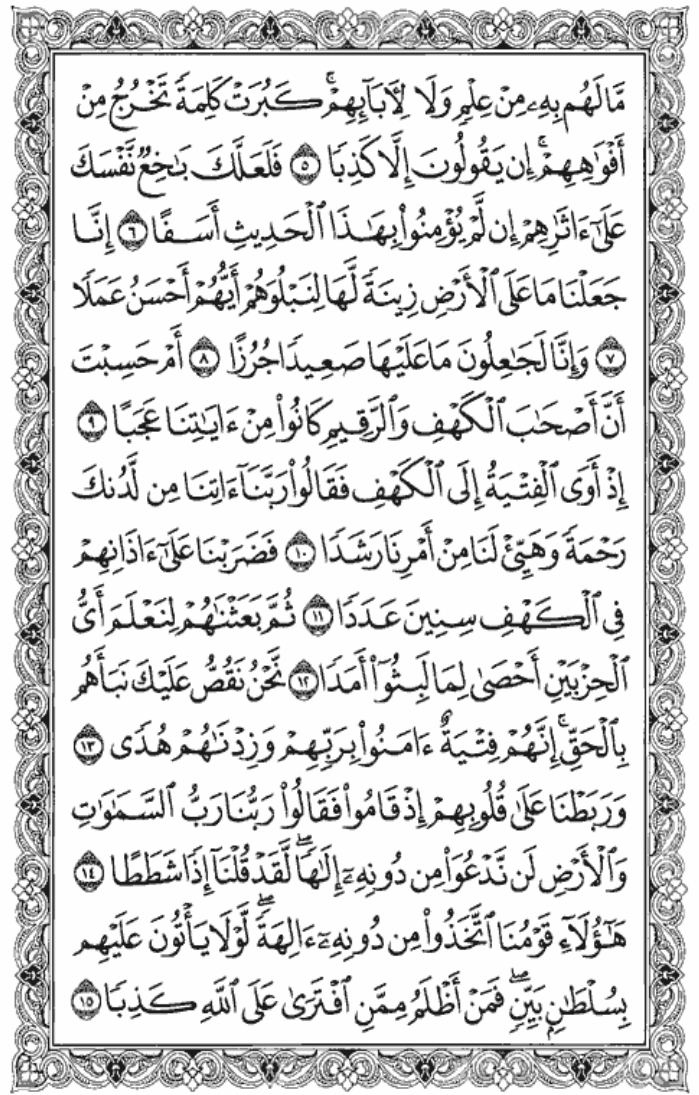 مَّا لَهُم بِهِۦ مِنْ عِلْمٍ وَلَا لِأٓبَآئِهِمْ ۚ كَبُرَتْ كَلِمَةً تَخْرُجُ مِنْ
أَفْوَٰهِهِمْ ۚ إِن يَقُولُونَ إِلَّا كَذِبًا ٥ فَلَعَلَّكَ بَـٰخِعٌ نَّفْسَكَ
عَلَىٰٓ ءَاثَـٰرِهِمْ إِن لَّمْ يُؤْمِنُوا۟ بِهَـٰذَا ٱلْحَدِيثِ أَسَفًا ٦ إِنَّا
جَعَلْنَا مَا عَلَى ٱلْأَرْضِ زِينَةً لَّهَا لِنَبْلُوَهُمْ أَيُّهُمْ أَحْسَنُ عَمَلًا
٧ وَإِنَّا لَجَـٰعِلُونَ مَا عَلَيْهَا صَعِيدًا جُرُزًا ٨ أَمْ حَسِبْتَ
أَنَّ أَصْحَـٰبَ ٱلْكَهْفِ وَٱلرَّقِيمِ كَانُوا۟ مِنْ ءَايَـٰتِنَا عَجَبًا ٩
إِذْ أَوَى ٱلْفِتْيَةُ إِلَى ٱلْكَهْفِ فَقَالُوا۟ رَبَّنَآ ءَاتِنَا مِن لَّدُنكَ
رَحْمَةً وَهَيِّئْ لَنَا مِنْ أَمْرِنَا رَشَدًا ١٠ فَضَرَبْنَا عَلَىٰٓ ءَاذَانِهِمْ
فِى ٱلْكَهْفِ سِنِينَ عَدَدًا ١١ ثُمَّ بَعَثْنَـٰهُمْ لِنَعْلَمَ أَىُّ
ٱلْحِزْبَيْنِ أَحْصَىٰ لِمَا لَبِثُوٓا۟ أَمَدًا ١٢ نَّحْنُ نَقُصُّ عَلَيْكَ نَبَأَهُم
بِٱلْحَقِّ ۚ إِنَّهُمْ فِتْيَةٌ ءَامَنُوا۟ بِرَبِّهِمْ وَزِدْنَـٰهُمْ هُدًى ١٣
وَرَبَطْنَا عَلَىٰ قُلُوبِهِمْ إِذْ قَامُوا۟ فَقَالُوا۟ رَبُّنَا رَبُّ ٱلسَّمَـٰوَٰتِ
وَٱلْأَرْضِ لَن نَّدْعُوَا۟ مِن دُونِهِۦٓ إِلَـٰهًا ۖ لَّقَدْ قُلْنَآ إِذًا شَطَطًا ١٤
هَـٰٓؤُلَآءِ قَوْمُنَا ٱتَّخَذُوا۟ مِن دُونِهِۦٓ ءَالِهَةً ۖ لَّوْلَا يَأْتُونَ عَلَيْهِم
بِسُلْطَـٰنٍۭ بَيِّنٍ ۖ فَمَنْ أَظْلَمُ مِمَّنِ ٱفْتَرَىٰ عَلَى ٱللَّهِ كَذِبًا ١٥